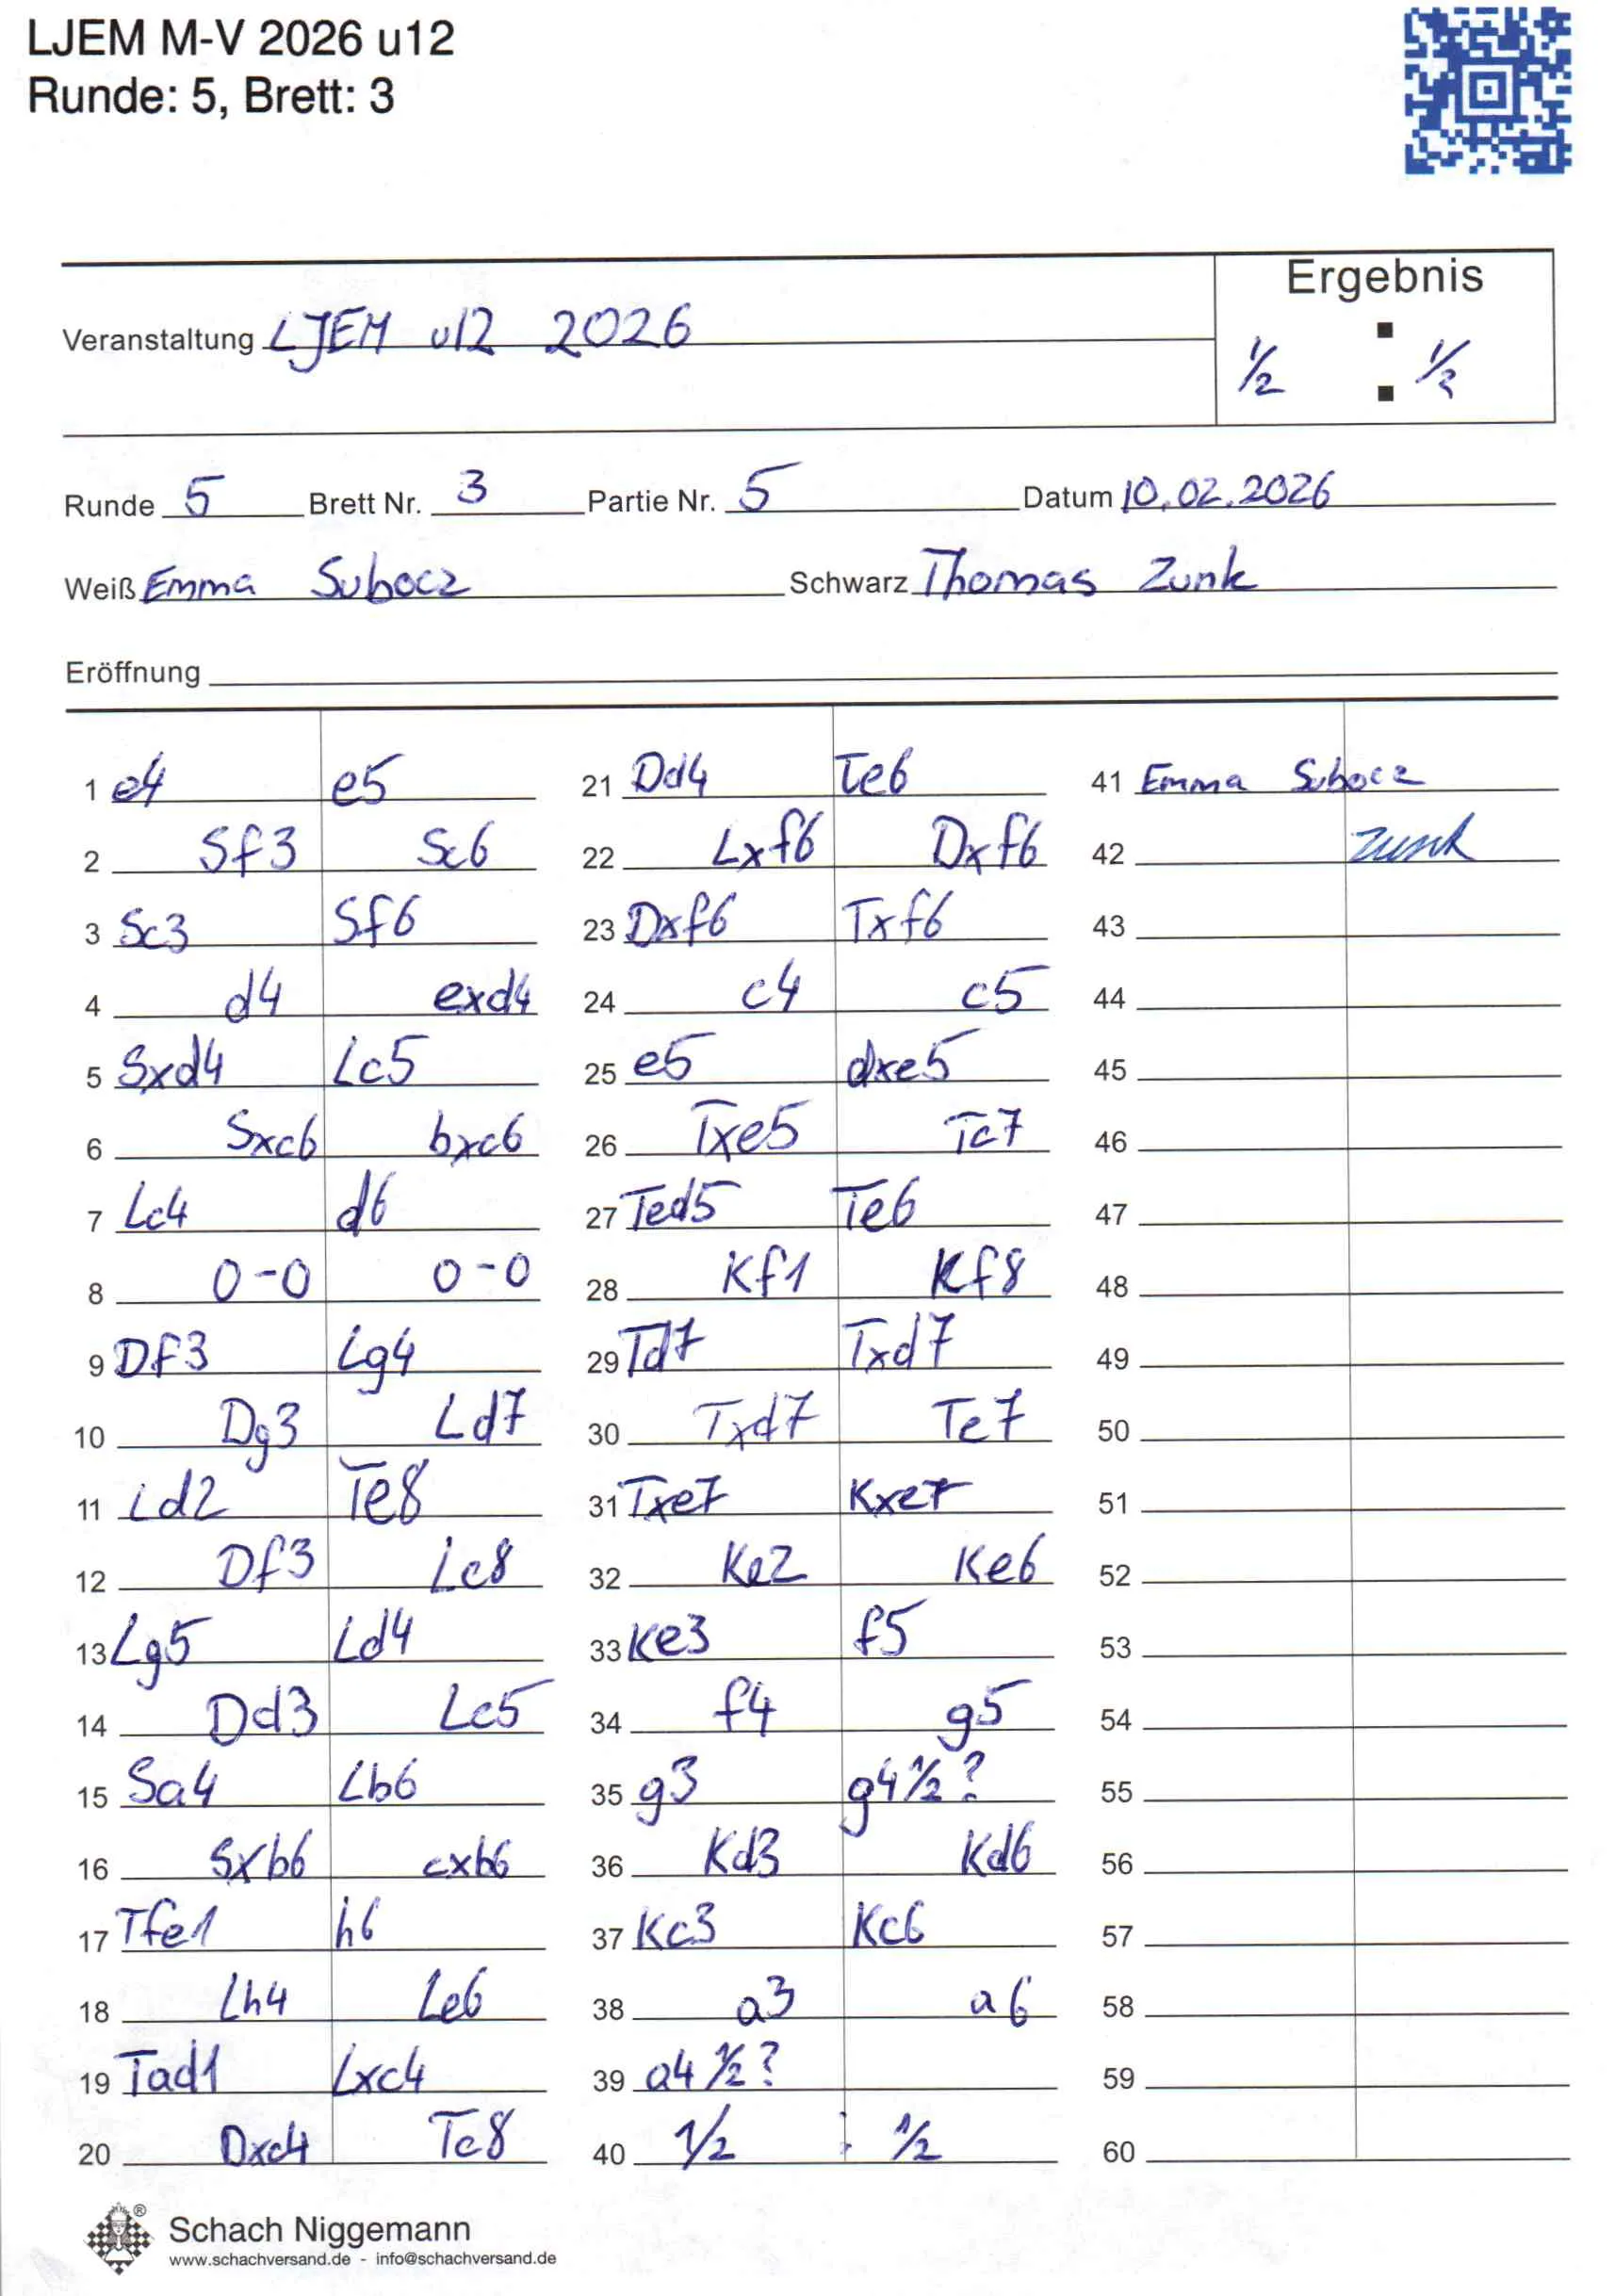 LJEM M-V 2026 u12
Runde: 5, Brett: 3
Ergebnis
Veranstaltung LJEM u12 2026
1/2 : 1/2
Runde 5 Brett Nr. 3 Partie Nr. 5 Datum 10.02.2026
Weiß Emma Subocz Schwarz Thomas Zunk
Eröffnung
1 e4 e5
2 Sf3 Sc6
3 Sc3 Sf6
4 d4 exd4
5 Sxd4 Lc5
6 Sxc6 bxc6
7 Lc4 d6
8 0-0 0-0
9 Df3 Lg4
10 Dg3 Ld7
11 Ld2 Te8
12 Df3 Lc8
13 Lg5 Ld4
14 Dd3 Lc5
15 Sa4 Lb6
16 Sxb6 cxb6
17 Tfe1 h6
18 Lh4 Le6
19 Tad1 Lxc4
20 Dxc4 Tc8
21 Dd4 Te6
22 Lxf6 Dxf6
23 Dxf6 Txf6
24 c4 c5
25 e5 dxe5
26 Txe5 Tc7
27 Ted5 Te6
28 Kf1 Kf8
29 Td7 Txd7
30 Txd7 Te7
31 Txe7 Kxe7
32 Ke2 Ke6
33 Ke3 f5
34 f4 g5
35 g3 g4 1/2?
36 Kd3 Kd6
37 Kc3 Kc6
38 a3 a6
39 a4 1/2?
40 1/2 : 1/2
41 Emma Subocz
42 Zunk
43
44
45
46
47
48
49
50
51
52
53
54
55
56
57
58
59
60
®
Schach Niggemann
www.schachversand.de - info@schachversand.de